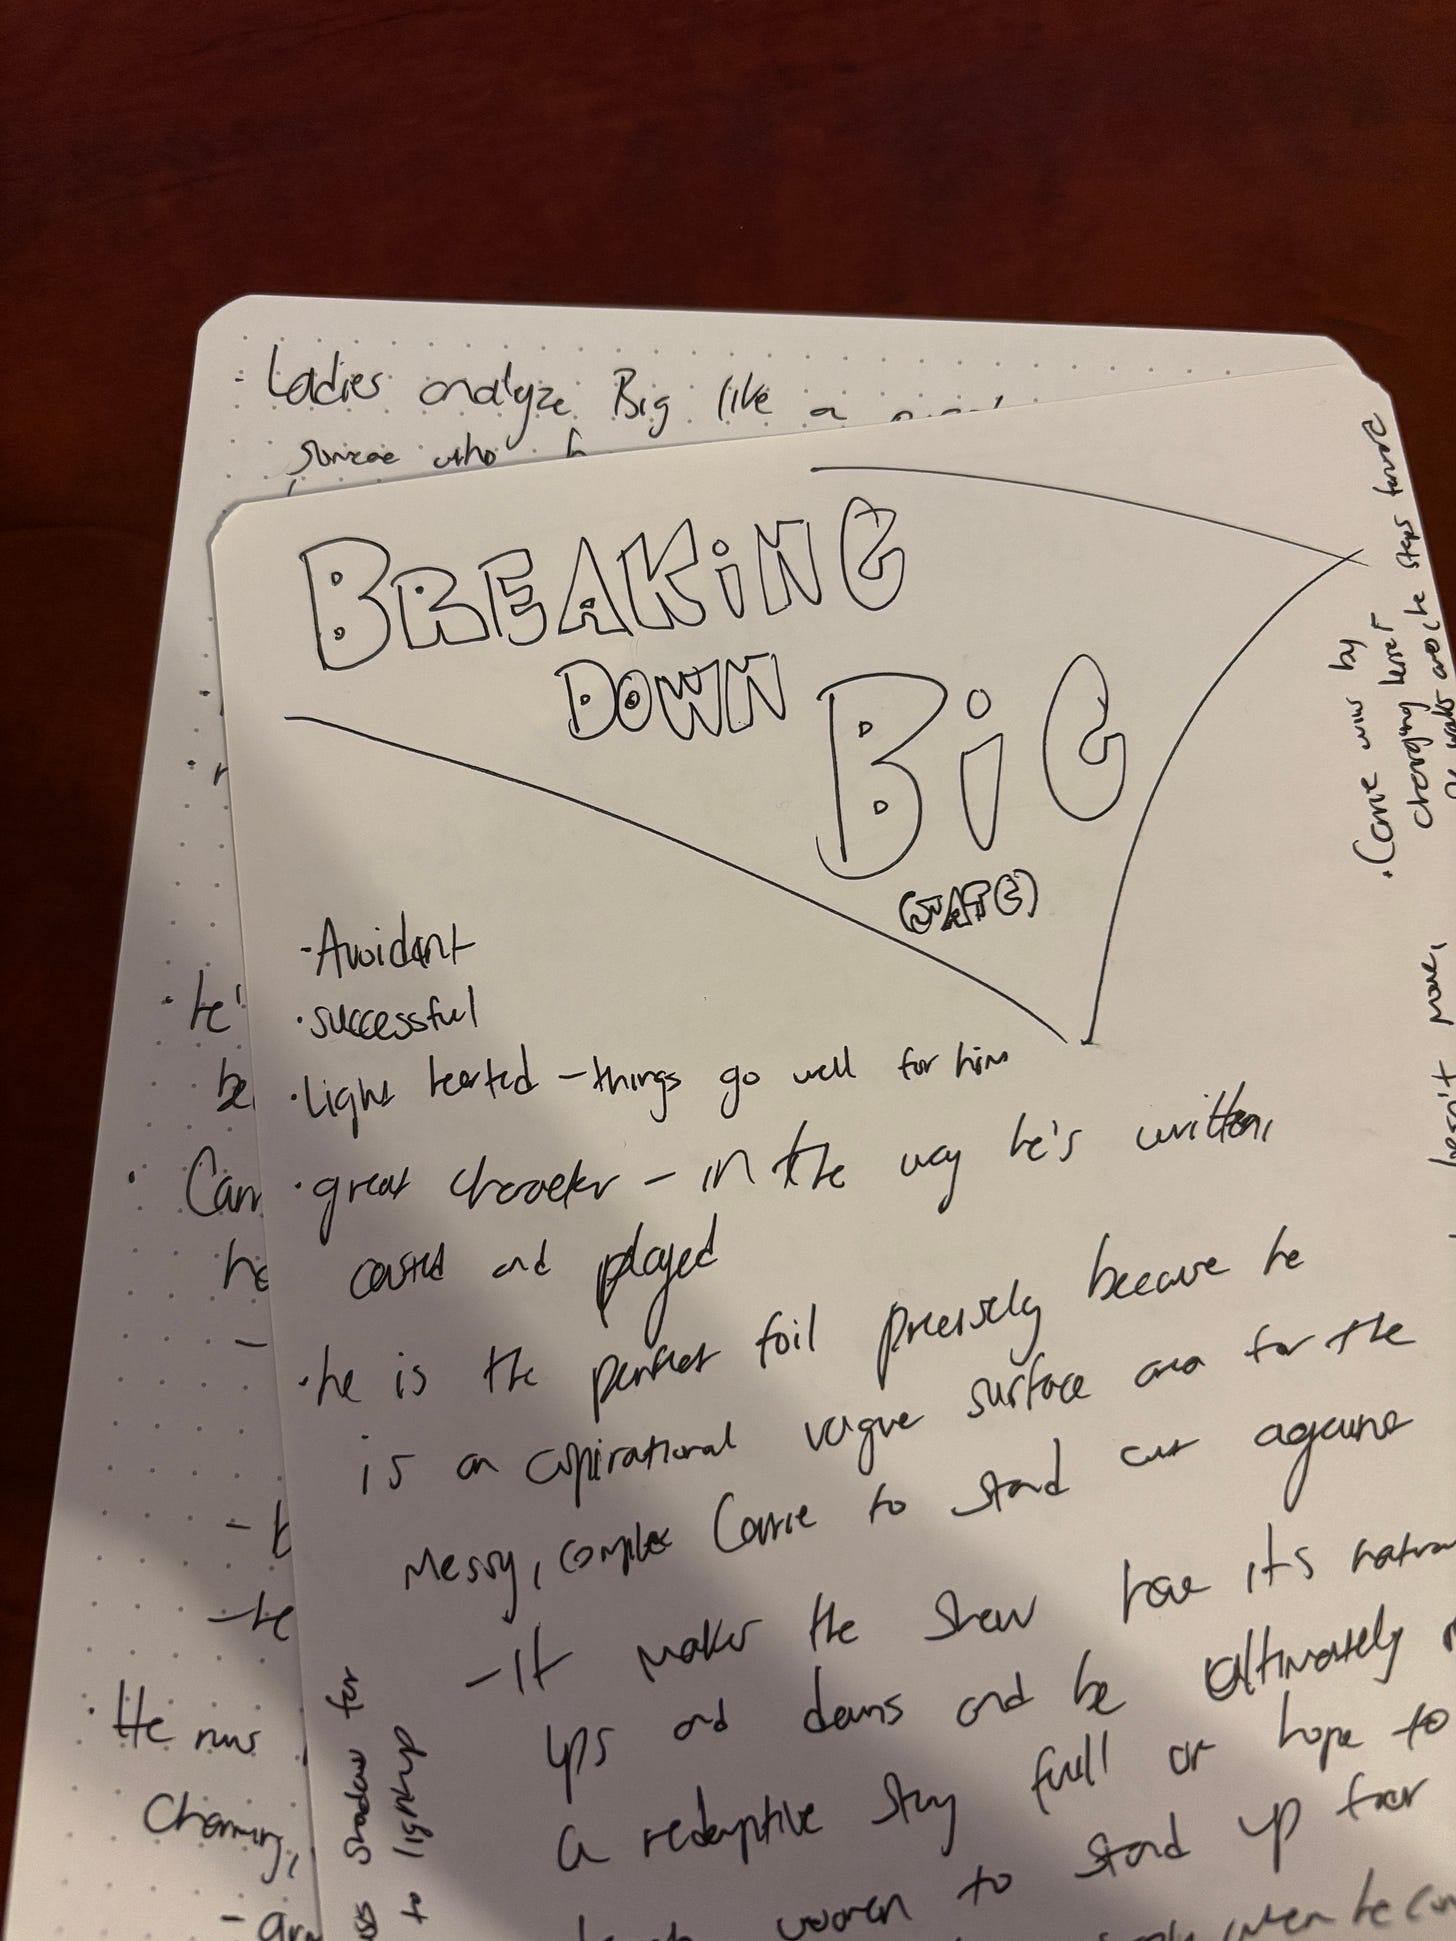 - Ladies analyze Big like a
someone who
BREAKiNG
DOWN
BiG
(SATC)
- Avoidant
· successful
· Light hearted - things go well for him
· great character - in the way he's written,
casted and played
· he is the perfect foil precisely because he
is an aspirational vague surface area for the
messy, complex Carrie to stand out against
- It makes the show have it's
ups and downs and be ultimately
a redemptive story full of hope to
women to stand up for
when he
· Carrie wins by
changing
steps
more,
shadow for
to light up
· he'
be
· Carr
he
-
-
- he
· He runs
Charming,
-